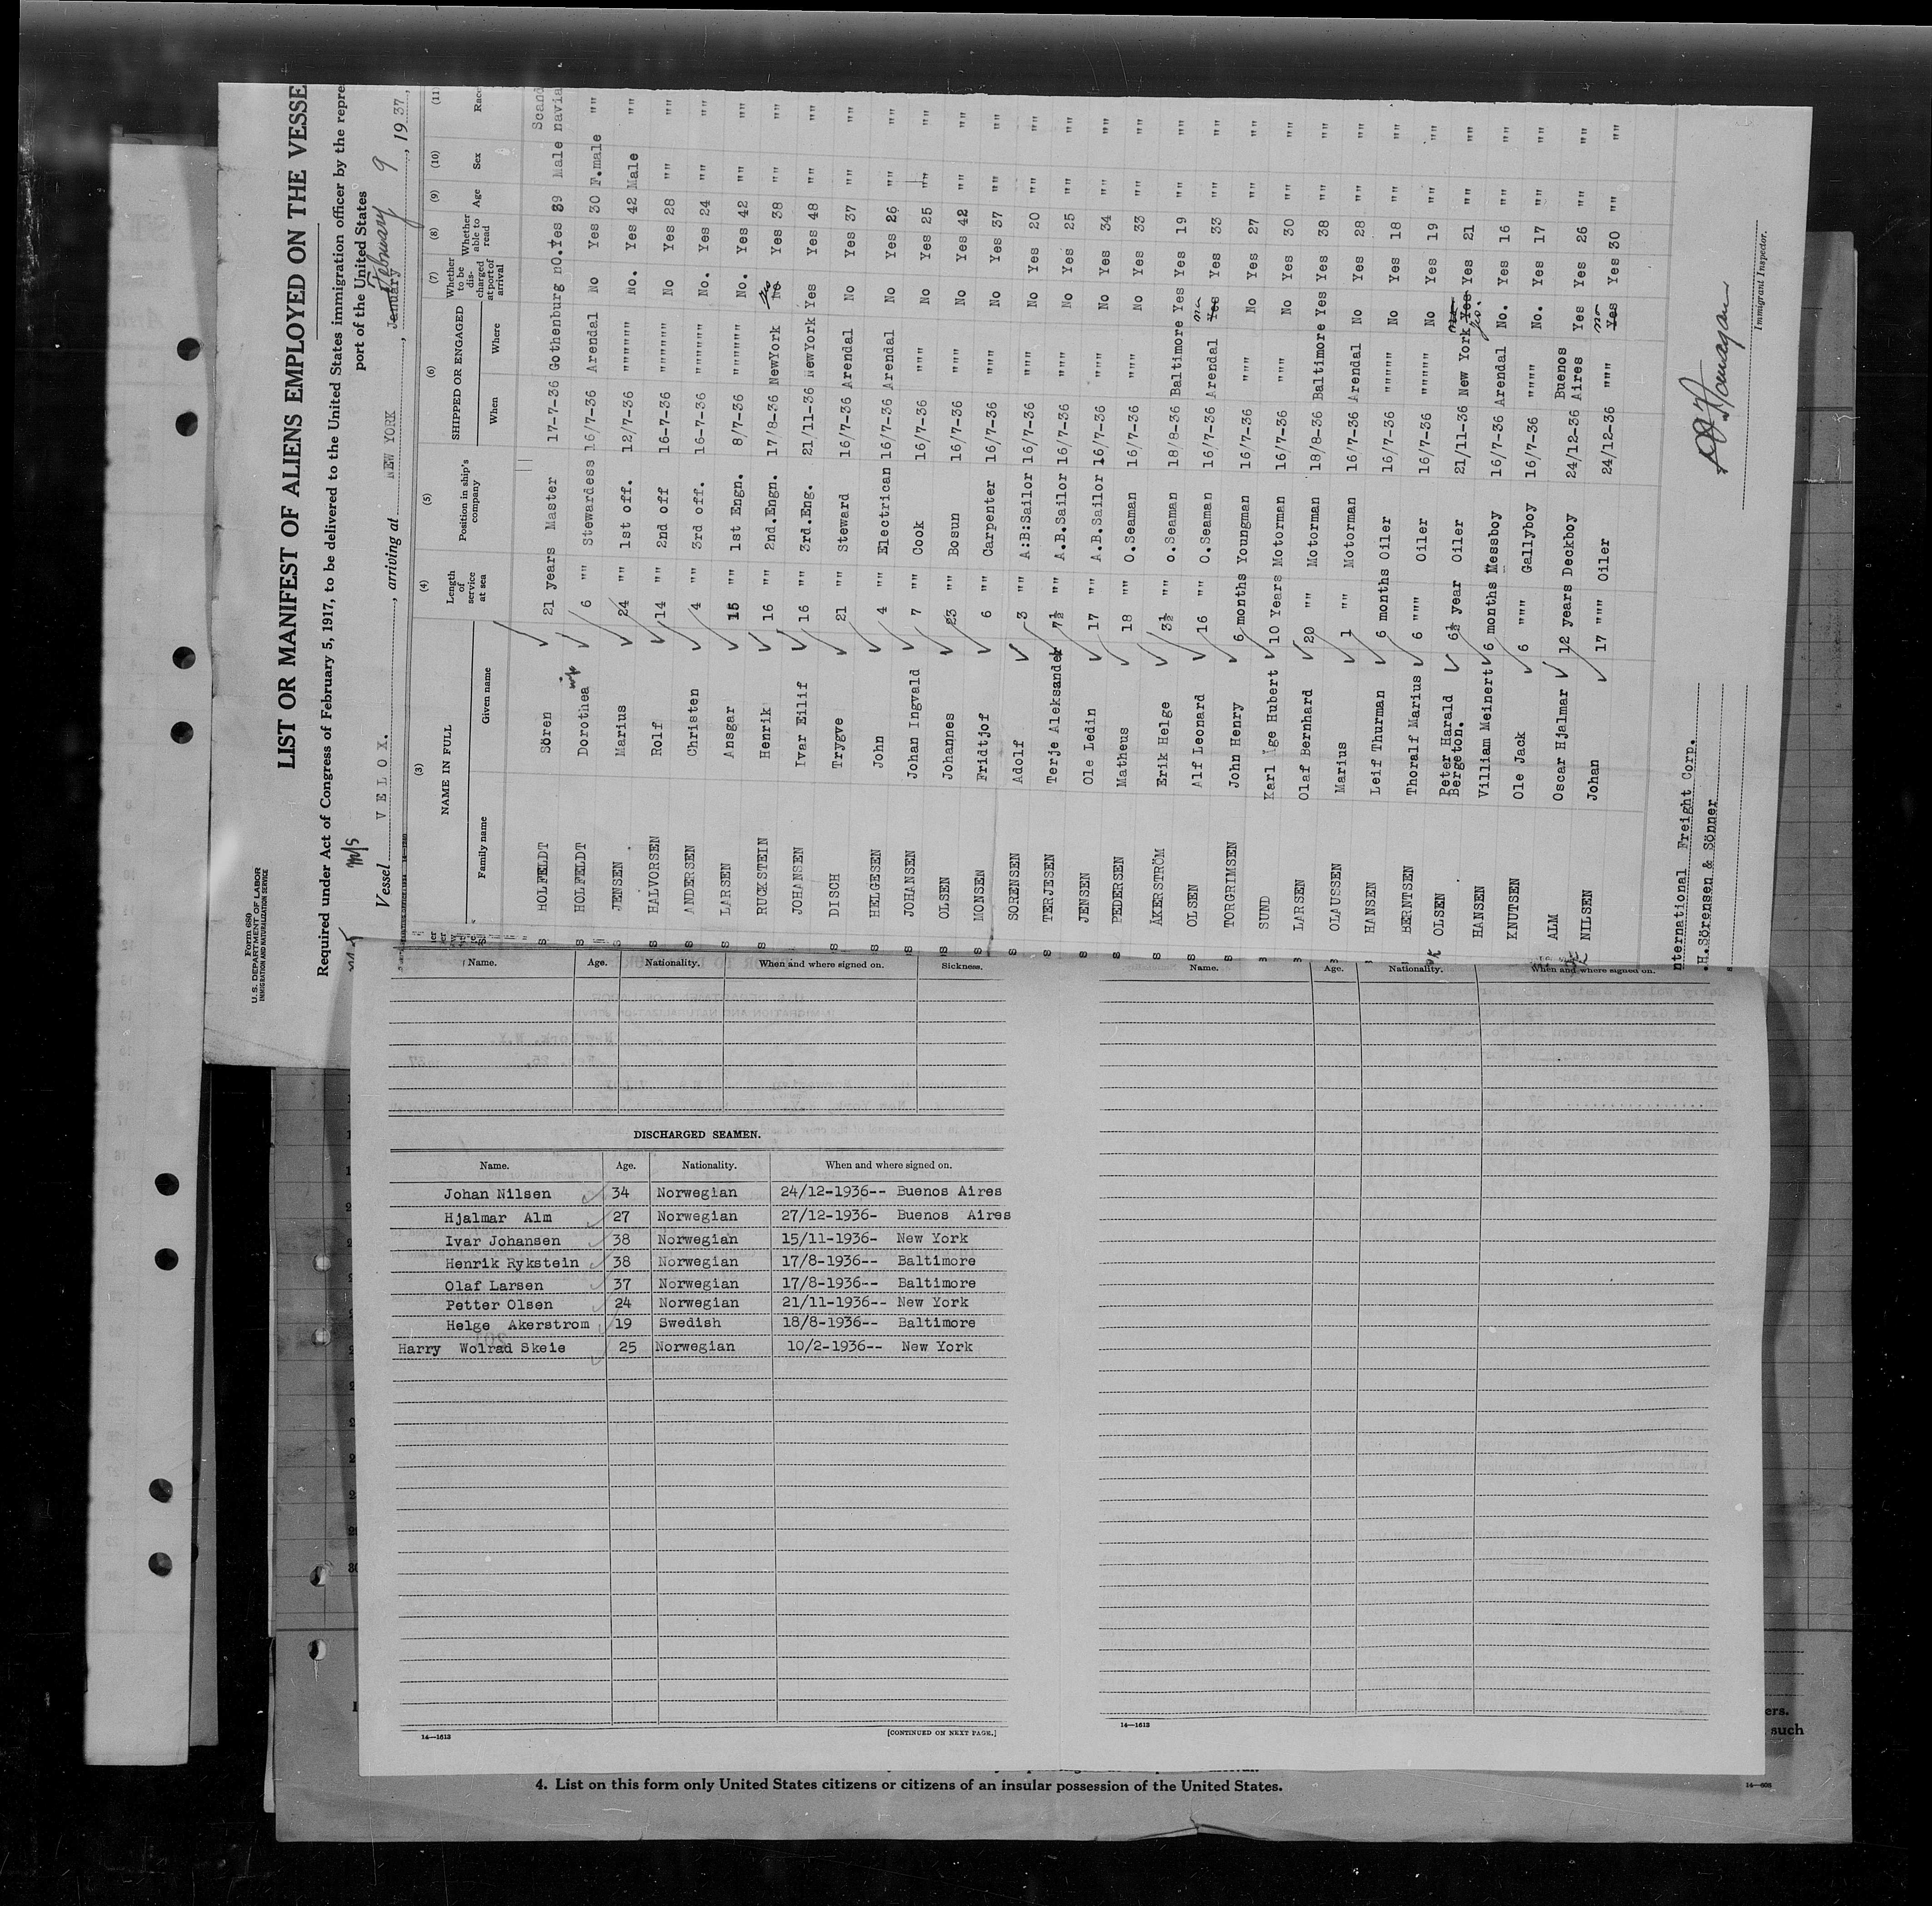 Form 680
U. S. DEPARTMENT OF LABOR
IMMIGRATION AND NATURALIZATION SERVICE
LIST OR MANIFEST OF ALIENS EMPLOYED ON THE VESSE
Required under Act of Congress of February 5, 1917, to be delivered to the United States immigration officer by the repre
port of the United States
Vessel M/S V E L O X. , arriving at NEW YORK , January February 9 , 1937,
(3) (4) (5) (6) (7) (8) (9) (10) (11)
NAME IN FULL Length of service at sea Position in ship's company SHIPPED OR ENGAGED Whether to be discharged at port of arrival Whether able to read Age Sex Race
Family name Given name When Where
HOLFELDT Sören 21 years Master 17-7-36 Gothenburg no. Yes 39 Male Scandnavia
HOLFELDT Dorothea 6 "" Stewardess 16/7-36 Arendal No Yes 30 F.male ""
JENSEN Marius 24 "" 1st off. 12/7-36 """""" No. Yes 42 Male ""
HALVORSEN Rolf 14 "" 2nd off 16-7-36 """""" No Yes 28 "" ""
ANDERSEN Christen 4 "" 3rd off. 16-7-36 """""" No. Yes 24 "" ""
LARSEN Ansgar 15 "" 1st Engn. 8/7-36 """""" No. Yes 42 "" ""
RUCKSTEIN Henrik 16 "" 2nd.Engn. 17/8-36 NewYork No Yes 38 "" ""
JOHANSEN Ivar Eilif 16 "" 3rd.Eng. 21/11-36 NewYork Yes Yes 48 "" ""
DISCH Trygve 21 "" Steward 16/7-36 Arendal No Yes 37 "" ""
HELGESEN John 4 "" Electrican 16/7-36 Arendal No Yes 26 "" ""
JOHANSEN Johan Ingvald 7 "" Cook 16/7-36 """ No Yes 25 "" ""
OLSEN Johannes 23 "" Bosun 16/7-36 """ No Yes 42 "" ""
MONSEN Fridtjof 6 "" Carpenter 16/7-36 """ No Yes 37 "" ""
SORENSEN Adolf 3 "" A:B:Sailor 16/7-36 """ No Yes 20 "" ""
TERJESEN Terje Aleksander 7½ "" A.B.Sailor 16/7-36 """ No Yes 25 "" ""
JENSEN Ole Ledin 17 "" A.B.Sailor 16/7-36 """ No Yes 34 "" ""
PEDERSEN Matheus 18 "" O.Seaman 16/7-36 """ No Yes 33 "" ""
ÅKERSTRÖM Erik Helge 3½ "" O.Seaman 18/8-36 Baltimore Yes Yes 19 "" ""
OLSEN Alf Leonard 16 "" O.Seaman 16/7-36 Arendal Yes no Yes 33 "" ""
TORGRIMSEN John Henry 6 months Youngman 16/7-36 """ No Yes 27 "" ""
SUND Karl Åge Hubert 10 Years Motorman 16/7-36 """ No Yes 30 "" ""
LARSEN Olaf Bernhard 20 "" Motorman 18/8-36 Baltimore Yes Yes 38 "" ""
OLAUSSEN Marius 1 "" Motorman 16/7-36 Arendal No Yes 28 "" ""
HANSEN Leif Thurman 6 months Oiler 16/7-36 """"" No Yes 18 "" ""
BERNTSEN Thoralf Marius 6 """ Oiler 16/7-36 """"" No Yes 19 "" ""
OLSEN Peter Harald Bergeton. 6½ year Oiler 21/11-36 New York Yes Yes 21 "" ""
HANSEN Villiam Meinert 6 months Messboy 16/7-36 Arendal No. Yes 16 "" ""
KNUTSEN Ole Jack 6 """ Gallyboy 16/7-36 """" No. Yes 17 "" ""
ALM Oscar Hjalmar 12 years Deckboy 24/12-36 Buenos Aires Yes Yes 26 "" ""
NILSEN Johan 17 """ Oiler 24/12-36 """ Yes no Yes 30 "" ""
nternational Freight Corp.
.H.Sörensen & Sönner
Immigrant Inspector.
Name. Age. Nationality. When and where signed on. Sickness.
DISCHARGED SEAMEN.
Name. Age. Nationality. When and where signed on.
Johan Nilsen 34 Norwegian 24/12-1936-- Buenos Aires
Hjalmar Alm 27 Norwegian 27/12-1936- Buenos Aires
Ivar Johansen 38 Norwegian 15/11-1936- New York
Henrik Rykstein 38 Norwegian 17/8-1936-- Baltimore
Olaf Larsen 37 Norwegian 17/8-1936-- Baltimore
Petter Olsen 24 Norwegian 21/11-1936-- New York
Helge Akerstrom 19 Swedish 18/8-1936-- Baltimore
Harry Wolrad Skeie 25 Norwegian 10/2-1936-- New York
14—1613 [CONTINUED ON NEXT PAGE.]
Name. Age. Nationality. When and where signed on.
14—1613
ers.
such
4. List on this form only United States citizens or citizens of an insular possession of the United States.
14—608